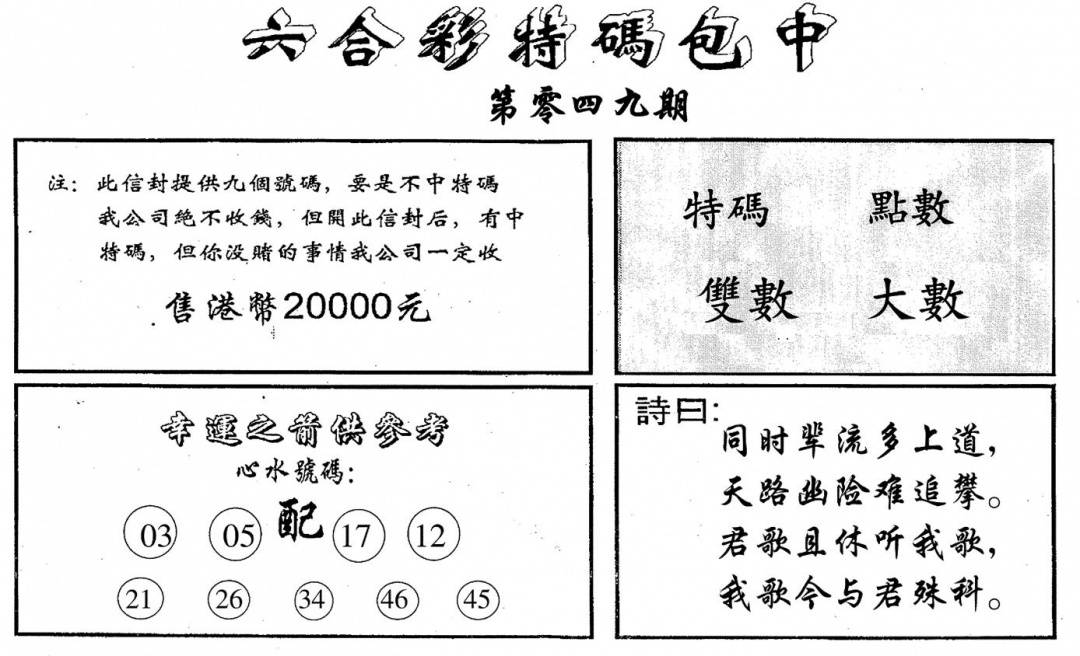 六合彩特碼包中
第零四九期
注：此信封提供九個號碼，要是不中特碼
我公司絕不收錢，但開此信封后，有中
特碼，但你没賭的事情我公司一定收
售港幣20000元
特碼 點數
雙數 大數
幸運之箭供參考
心水號碼：
03 05 配 17 12
21 26 34 46 45
詩曰：
同时辈流多上道，
天路幽险难追攀。
君歌且休听我歌，
我歌今与君殊科。